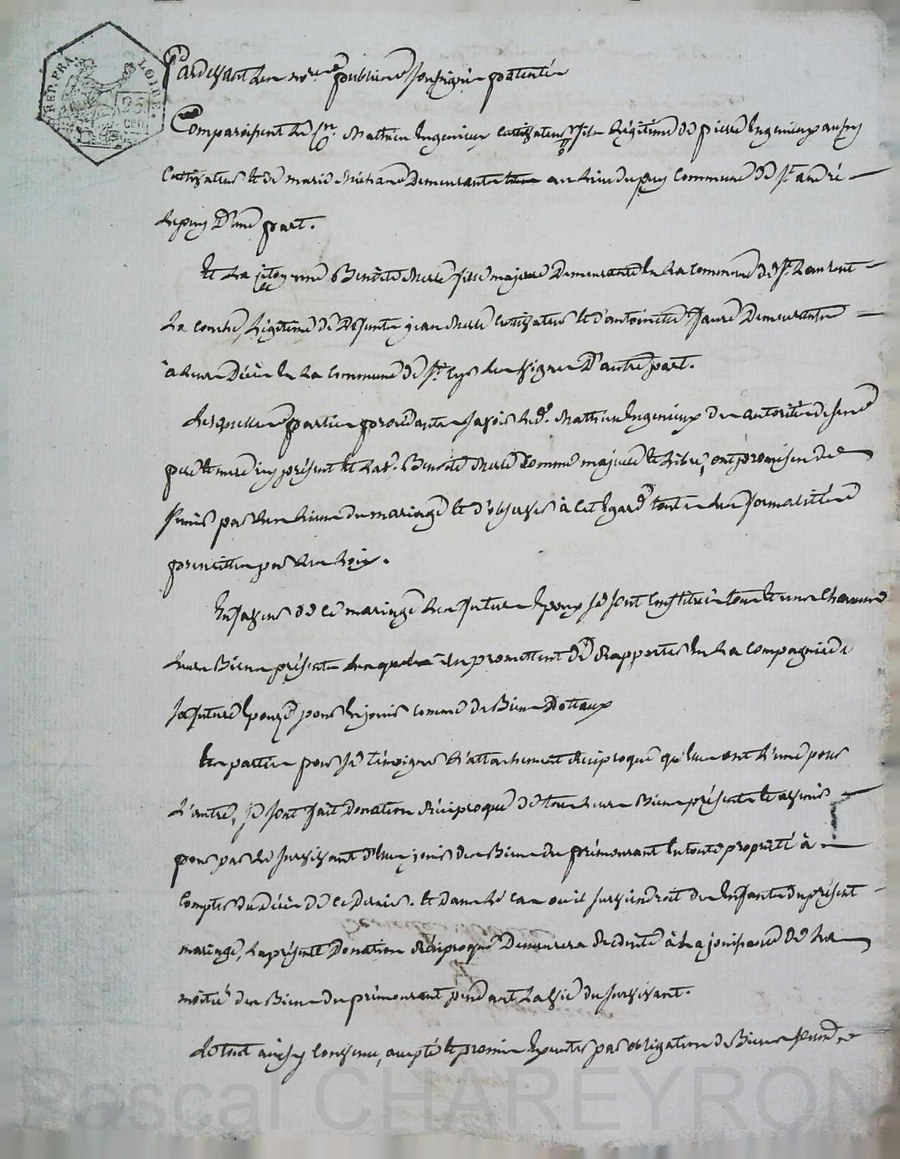 REP. FRA. LOIRE.
25 CENT
Pardevant les nores publics soussignés patentés
Comparoissent le Sr. Mathieu Ingenieux Cultivateur fils légitime de pierre Ingenieux aussy
Cultivateur et de marie demeurants au lieu du puy Commune de St. andré
lepuy D'une part.
Et la citoyenne Benoite fille majeure demeurante En la Commune de St. Laurent
La conche, légitime de défunts jean Cultivateur et d'antoinette faure Demeurants
à leur Décès En la Commune de St. Cyr les vignes D'autre part.
Lesquelles parties procédantes savoir led. Mathieu Ingenieux de autorité de ses
pere et mere icy présents et lad. Benoite comme majeure et libre, ont promis de
s'unir par les liens du mariage et d'observer à cet Egard toutes les formalités
prescrittes par les loix.
En faveur de ce mariage les futurs Epoux se sont Constitués tous et uns Chacuns
leurs Biens présents qu'ils promettent de Rapporter En la Compagnie de
sa future Epouse pour En jouir comme de Biens Dottaux
Les parties pour se témoigner l'attachement Réciproque qu'elles ont l'une pour
l'autre, se sont fait Donation Réciproque de tous leurs Biens présents et avenir
pour par le survivant d'Eux jouir des Biens du prémourant En toute propriété à
Compter du Décès de ce Dernier. et dans le cas ou il surviendroit des Enfants du présent
mariage, la présente Donation Réciproque Demeurera Réduite à la jouissance de la
moitié des Biens du prémourant pendant la vie du survivant.
Le tout ainsy Convenu, accepté et promis Executer par obligation de Biens
Pascal CHAREYRON